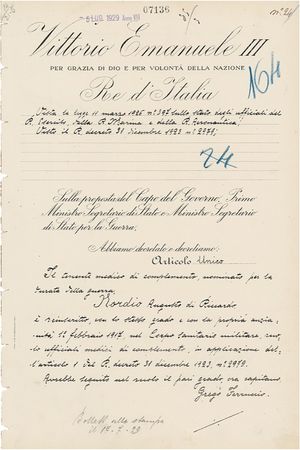 07136
n° 24
5 LUG. 1929 Anno VII
Vittorio Emanuele III
PER GRAZIA DI DIO E PER VOLONTÀ DELLA NAZIONE
164
Re d'Italia
Vista la legge 11 marzo 1926 n° 397 sullo stato degli ufficiali del
R. Esercito, della R. Marina e della R. Aeronautica;
Visto il R. decreto 31 dicembre 1923 n° 2979;
24
Sulla proposta del Capo del Governo, Primo
Ministro Segretario di Stato e Ministro Segretario
di Stato per la Guerra;
Abbiamo decretato e decretiamo:
Articolo Unico
Il tenente medico di complemento, nominato per la
durata della guerra,
Nordio Augusto di Riccardo
è reinscritto, con lo stesso grado e con la propria anzia-
nità 1° febbraio 1917, nel Corpo sanitario militare, ruo-
lo ufficiali medici di complemento, in applicazione del-
l'articolo 1 del R. decreto 31 dicembre 1923, n° 2979.
Avrebbe seguito nel ruolo il pari grado, ora capitano,
Grego Ferruccio.
Bollett. alla stampa
il 15-7-29